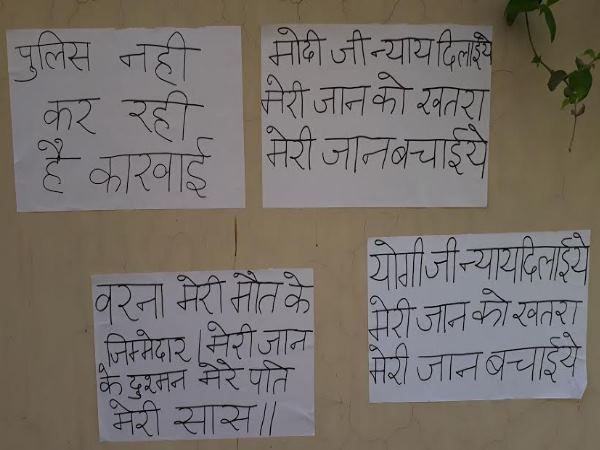 पुलिस नही
कर रही
है कारवाई
मोदी जी न्याय दिलाईये
मेरी जान को खतरा
मेरी जान बचाईये
वरना मेरी मौत के
जिम्मेदार । मेरी जान
के दुश्मन मेरे पति
मेरी सास ।।
योगी जी न्याय दिलाईये
मेरी जान को खतरा
मेरी जान बचाईये